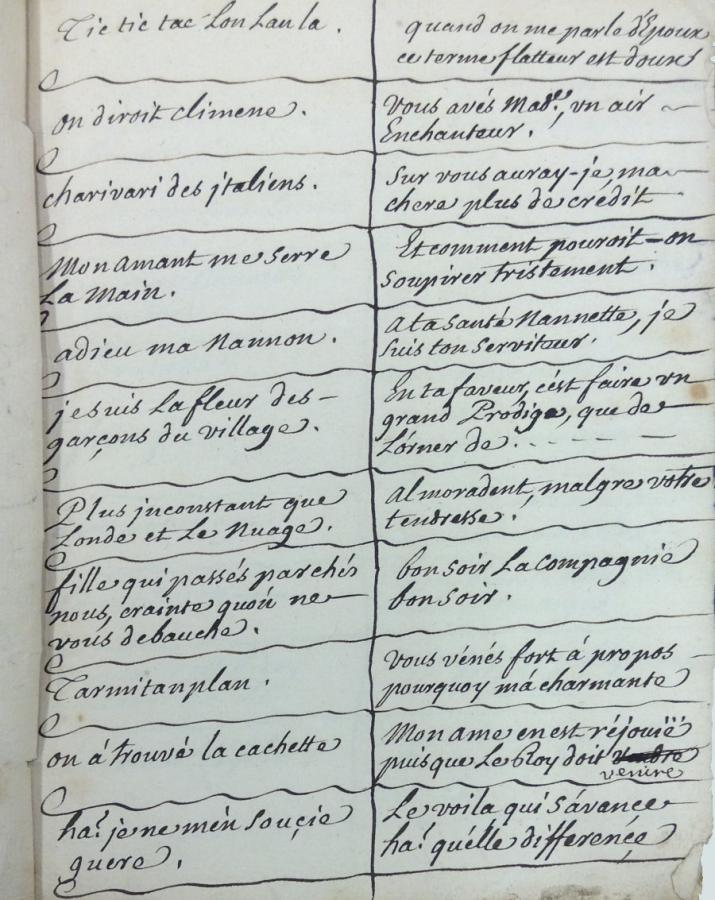 Tic tic tac Lon Lan la.
quand on me parle d'Epoux
ce terme flatteur est doux
on diroit climene.
Vous avés Mad.e, vn air
Enchanteur.
charivari des jtaliens.
Sur vous auray-je, ma
chere plus de crédit
Mon amant me serre
La Main.
Et comment pouroit-on
Soupirer tristement.
adieu ma Nannon.
a ta Santé Nannette, je
Suis ton Serviteur.
je suis La fleur des-
garçons du village.
En ta faveur, cést faire vn
grand Prodige, que de
Lórner de. - - - - -
Plus jnconstant que
Londe et Le Nuage.
almoradent, malgre votre
tendresse.
fille qui passés par chés
nous, crainte quoń ne
vous debauche.
bon soir La Compagnie
bon Soir.
Tarmitanplan.
Vous vénés fort á propos
pourquoy má charmante
on á trouvé la cachette
Mon ame en est réjouïe
puisque Le Roy doit vendre
venire
ha! je ne mén Souçie
guere.
Le voila qui S'avance
ha! quélle differençe